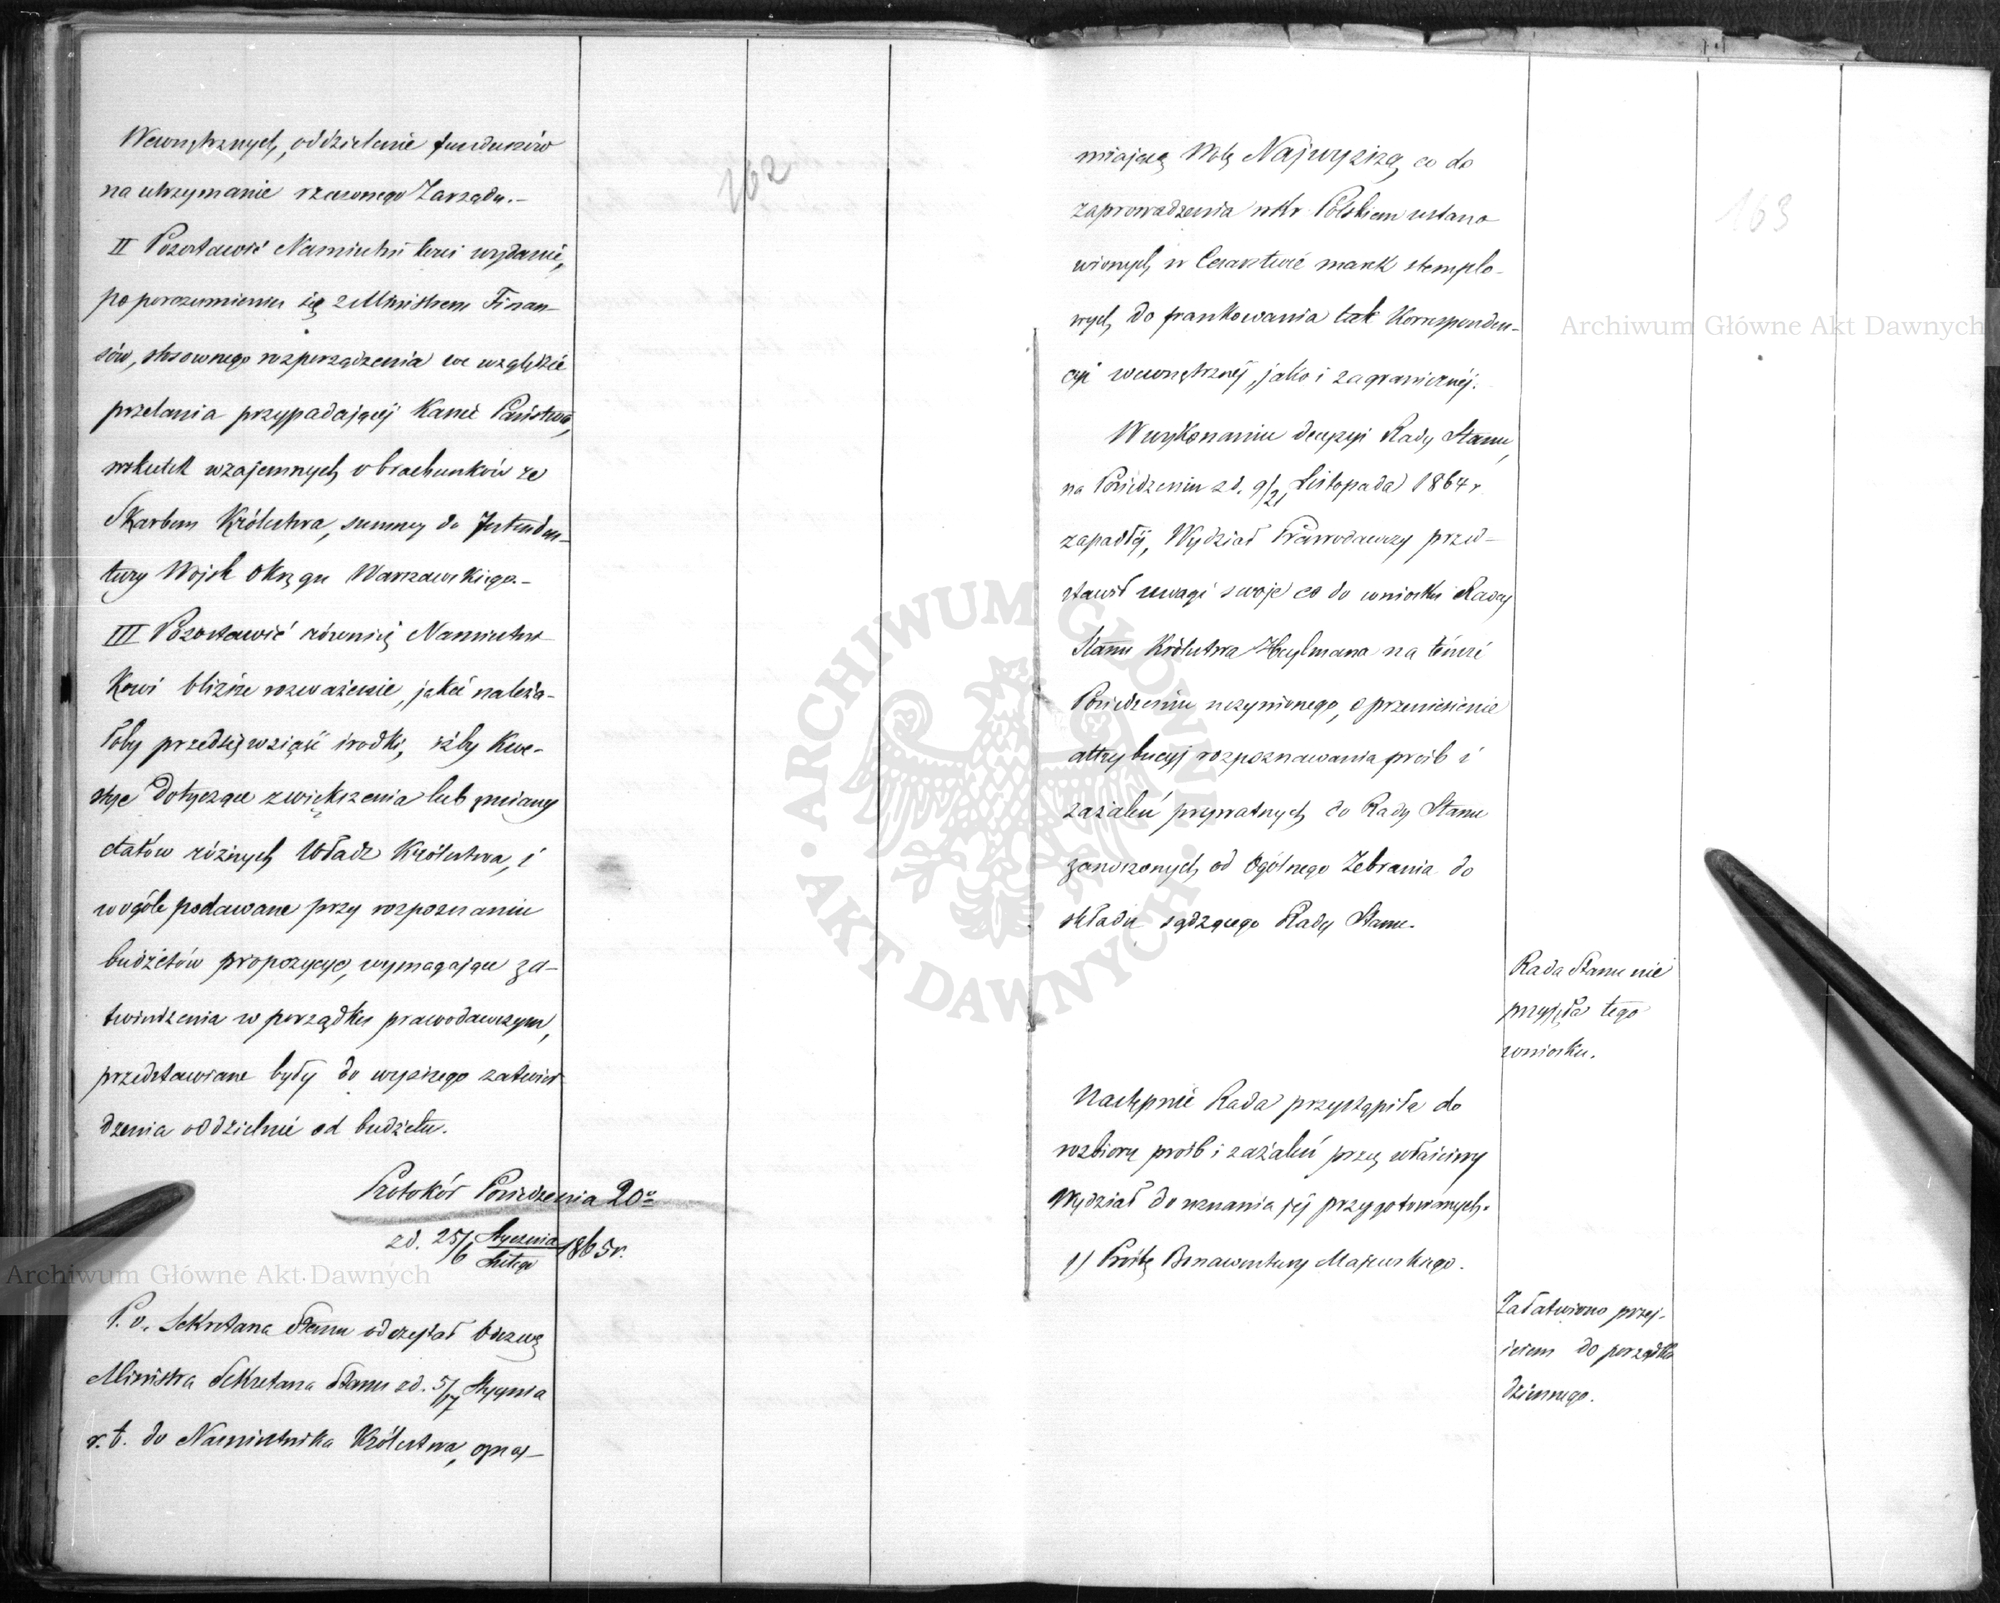 162
Wewnętrznych, oddzielenie funduszów
na utrzymanie rzeczonego Zarządu.—
II Pozostawić Namiestnikowi wydanie,
po porozumieniu się z Ministrem Finan-
sów, stosownego rozporządzenia we względzie
przelania przypadającej Kassie Państwa,
wskutek wzajemnych obrachunków ze
Skarbem Królestwa, summy do Intenden-
tury Wojsk Okręgu Warszawskiego.—
III Pozostawić również Namiestni-
kowi bliższe rozważenie, jakie należa-
łoby przedsięwziąść środki, iżby Kwe-
stye dotyczące zwiększenia lub zmiany
etatów różnych Władz Królestwa, i
w ogóle podawane przy rozpoznaniu
budżetów propozycye, wymagające za-
twierdzenia w porządku prawodawczym,
przedstawiane były do wyższego zatwier
dzenia oddzielnie od budżetu.
Protokół Posiedzenia 20go
z d. 25/6 Stycznia/Lutego 1865 r.
P. o. Sekretarza Stanu odczytał Odezwę
Ministra Sekretarza Stanu z d. 5/17 Stycznia
r. b. do Namiestnika Królestwa, oznaj-
163
miającą Wolę Najwyższą, co do
zaprowadzenia w Kr. Polskiem ustano
wionych w Cesarstwie marek stemplo-
wych, do frankowania tak Korrespenden-
cyi wewnętrznej, jako i zagranicznej.
W wykonaniu decyzyi Rady Stanu,
na Posiedzeniu z d. 9/21 Listopada 1864 r.
zapadłej, Wydział Prawodawczy przed-
stawił uwagi swoje co do wniosku Radcy
Stanu Królestwa Heylmana na temże
Posiedzeniu uczynionego, o przeniesienie
attrybucyj rozpoznawania próśb i
zażaleń prywatnych do Rady Stanu
zanoszonych, od Ogólnego Zebrania do
składu sądzącego Rady Stanu.
Rada Stanu nie
przyjęła tego
wniosku.
Następnie Rada przystąpiła do
rozbioru próśb i zażaleń przez właściwy
Wydział do uznania jej przygotowanych.
1) Prośbę Bonawentury Majewskiego.
Załatwiono przej-
ściem do porządku
dziennego.
Archiwum Główne Akt Dawnych
Archiwum Główne Akt Dawnych
ARCHIWUM GŁÓWNE
AKT DAWNYCH